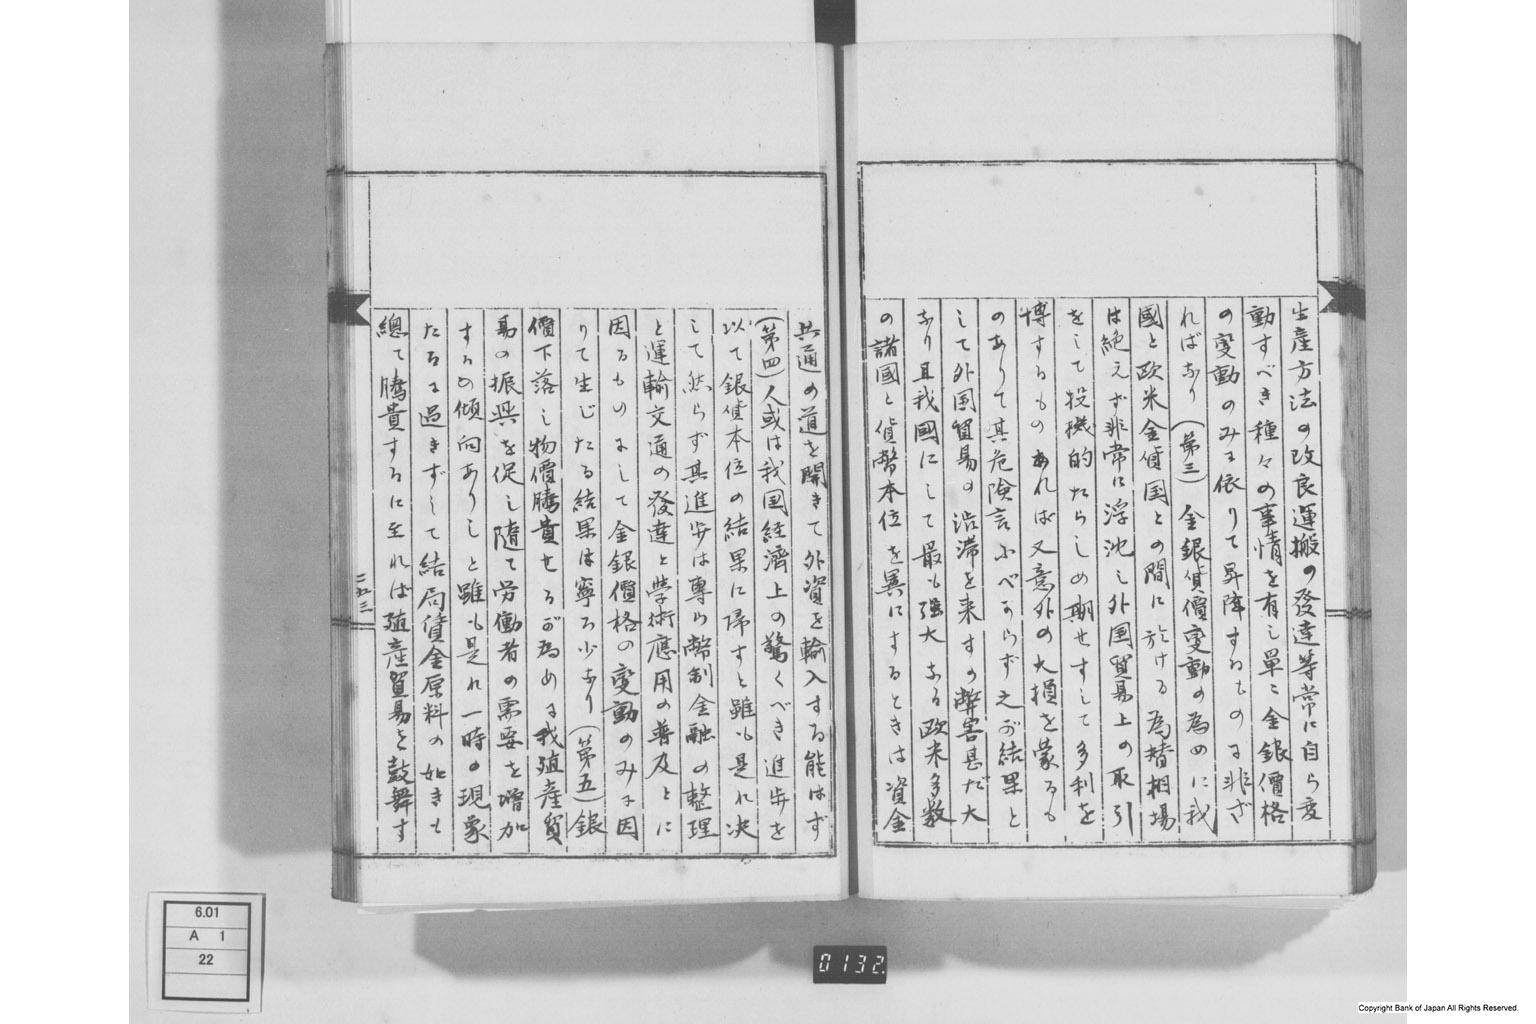 生産方法の改良運搬の發達等常に自ら変
動すべき種々の事情を有し單に金銀價格
の変動のみに依りて昇降するものに非ざ
ればなり(第三)金銀貨價変動の為めに我
國と欧米金貨国との間に於ける為替相場
は絶えず非常に浮沈し外国貿易上の取引
をして投機的たらしめ期せずして多利を
博するものあれば又意外の大損を蒙るも
のありて其危険言ふべからず之が結果と
して外国貿易の渋滞を来すの弊害甚だ大
なり且我國にして最も强大なる欧米多数
の諸國と貨幣本位を異にするときは資金
共通の道を開きて外資を輸入する能はず
(第四)人或は我国経済上の驚くべき進歩を
以て銀貨本位の結果に帰すと雖も是れ决
して然らず其進歩は專ら幣制金融の整理
と運輸交通の發達と学術應用の普及とに
因るものにして金銀價格の変動のみに因
りて生じたる結果は寧ろ少なり(第五)銀
價下落し物價騰貴せるが為めに我殖産貿
易の振興を促し隨て労働者の需要を增加
するの傾向ありしと雖も是れ一時の現象
たるに過きずして結局賃金原料の如きも
總て騰貴するに至れば殖産貿易を鼓舞す
二五三
6.01
A 1
22
0132
Copyright Bank of Japan All Rights Reserved.